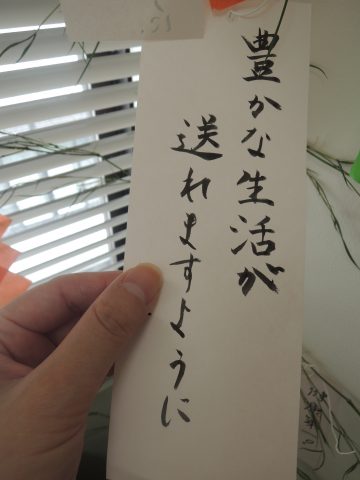 豊かな生活が
送れますように